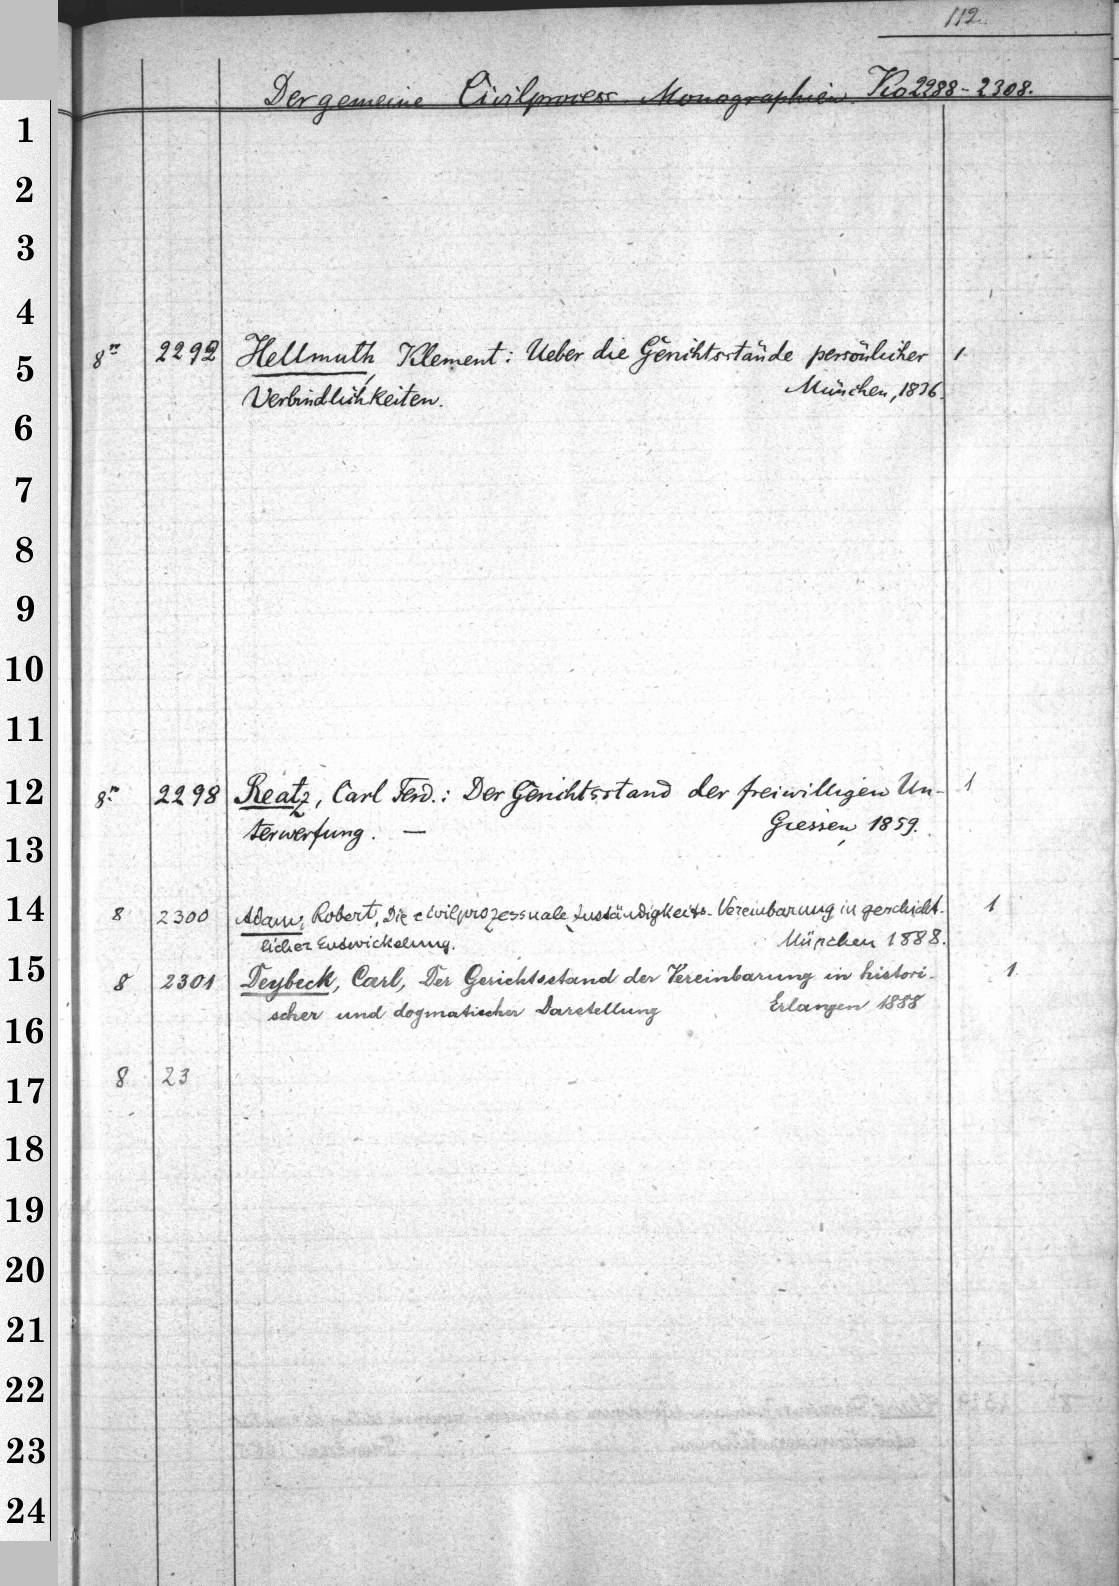 112.
Der gemeine Civilprocess. Monographien. No 2288-2308.
1
2
3
4
8° 2292 Hellmuth, Klement: Ueber die Gerichtsstände persönlicher 1.
5
Verbindlichkeiten. München, 1836.
6
7
8
9
10
11
12 8° 2298 Reatz, Carl Ferd.: Der Gerichtsstand der freiwilligen Un- 1
terwerfung. — Giessen, 1859.
13
14 8 2300 Adam, Robert, Die civilprozessuale Zuständigkeits-Vereinbarung in geschicht- 1
licher Entwickelung. München 1888.
15 8 2301 Deybeck, Carl, Der Gerichtsstand der Vereinbarung in histori- 1.
scher und dogmatischer Darstellung Erlangen 1888
16
8 23
17
18
19
20
21
22
23
24